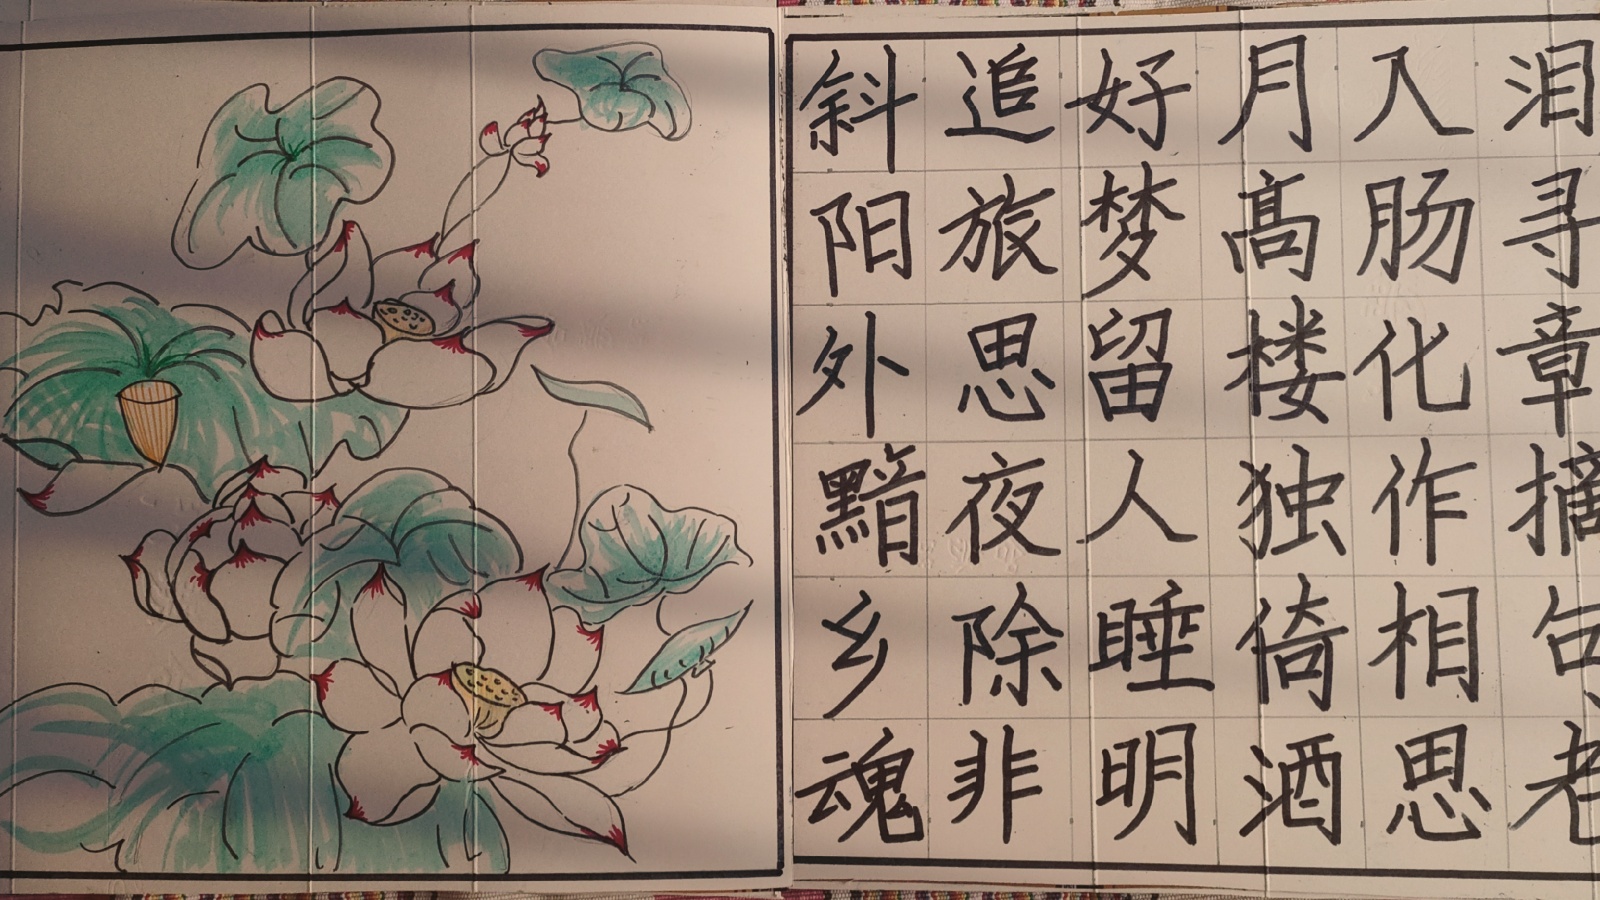 斜阳外黯乡魂
追旅思夜除非
好梦留人睡明
月髙楼独倚酒
入肠化作相思
泪寻章摘句老